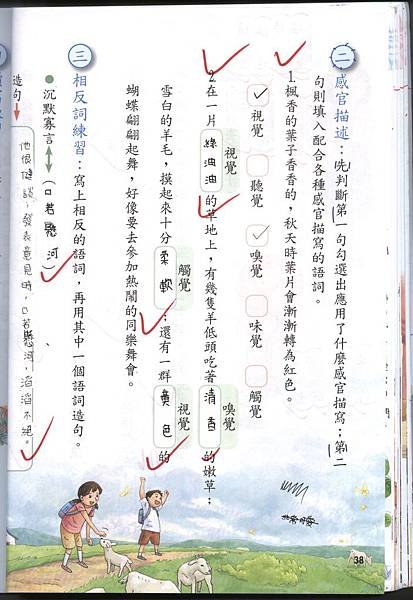 二 感官描述：先判斷第一句勾選出應用了什麼感官描寫；第二
句則填入配合各種感官描寫的語詞。
1.楓香的葉子香香的，秋天時葉片會漸漸轉為紅色。
視覺 聽覺 嗅覺 味覺 觸覺
2.在一片綠油油的草地上，有幾隻羊低頭吃著清香的嫩草；
視覺 嗅覺
雪白的羊毛，摸起來十分柔軟；還有一群黃色的
觸覺 視覺
蝴蝶翩翩起舞，好像要去參加熱鬧的同樂舞會。
三 相反詞練習：寫上相反的語詞，再用其中一個語詞造句。
沉默寡言 ↔（口若懸河）
造句
他很健談，發表意見時，口若懸河，滔滔不絕。
38